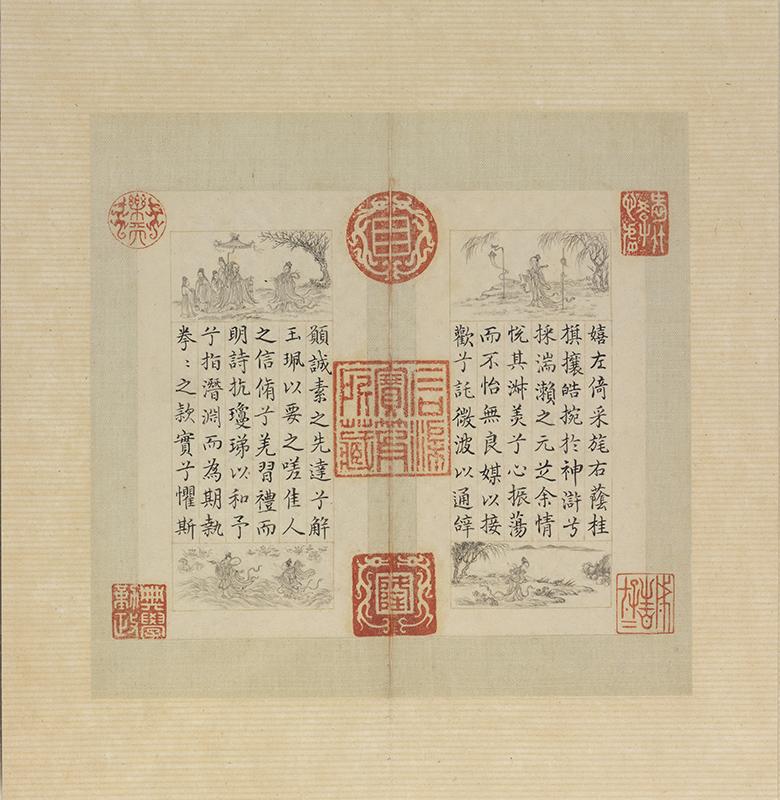 嬉左倚采旄右蔭桂
旗攘皓捥於神滸兮
採湍瀨之元芝余情
悅其淑美兮心振蕩
而不怡無良媒以接
歡兮託微波以通辭
願誠素之先達兮解
玉珮以要之嗟佳人
之信脩兮羌習禮而
明詩抗瓊珶以和予
兮指潛淵而為期執
拳〻之款實兮懼斯
石渠
寶笈
所藏
隆
樂天
典學
勤政